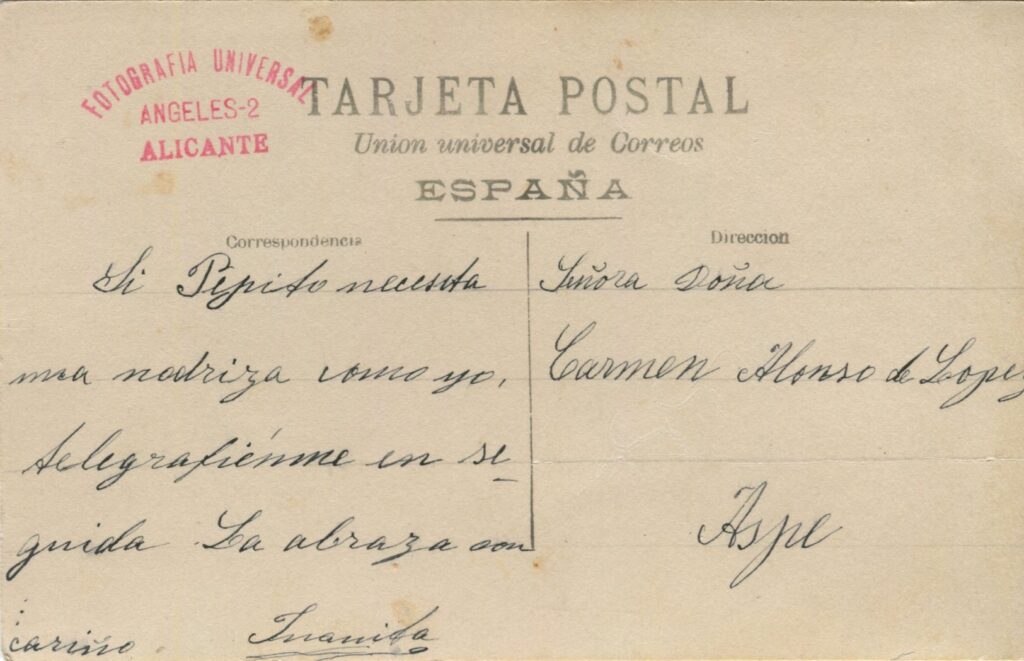 FOTOGRAFIA UNIVERSAL
ANGELES-2
ALICANTE
TARJETA POSTAL
Union universal de Correos
ESPAÑA
Correspondencia
Si Pepito necesita
una nodriza como yo,
telegrafiénme en se
guida La abraza con
cariño Juanita
Direccion
Señora Doña
Carmen Alonso de Lopez
Aspe